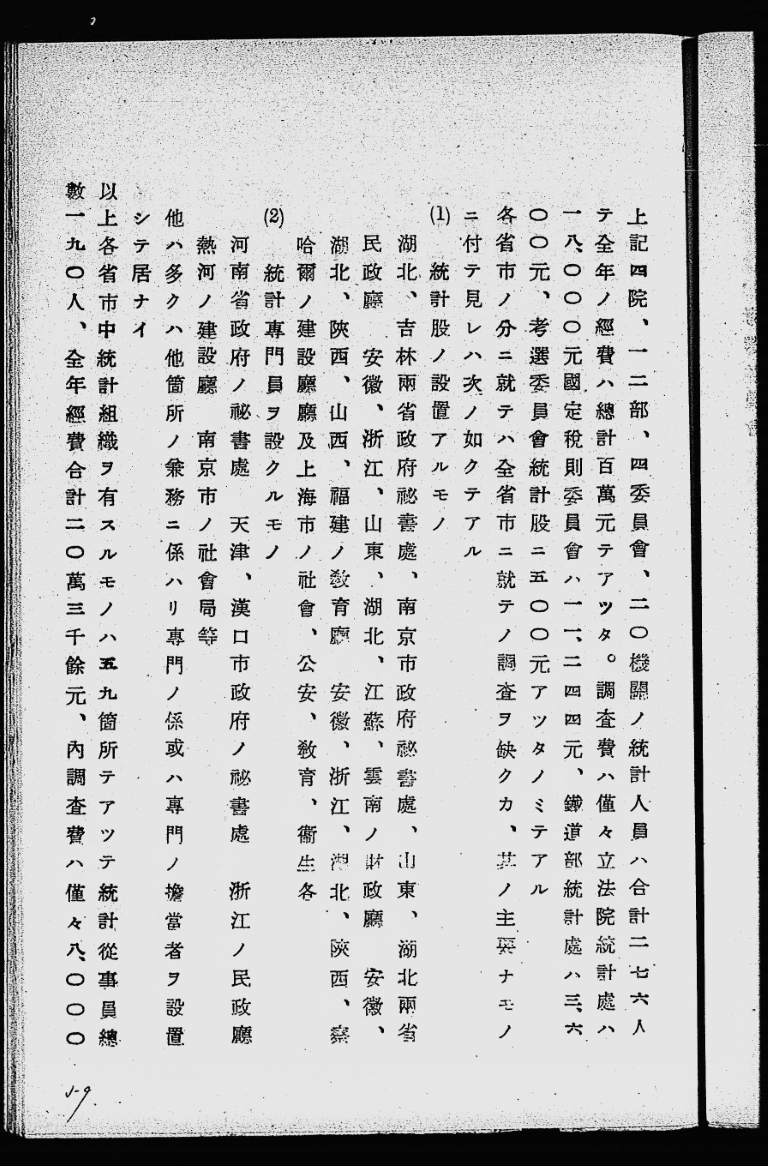 上記四院、一二部、四委員會、二〇機關ノ統計人員ハ合計二七六人
テ全年ノ經費ハ總計百萬元テアツタ。調査費ハ僅々立法院統計處ハ
一八、〇〇〇元國定税則委員會ハ一一、二四四元、鐵道部統計處ハ三、六
〇〇元、考選委員會統計股ニ五〇〇元アツタノミテアル
各省市ノ分ニ就テハ全省市ニ就テノ調査ヲ缺クカ、其ノ主要ナモノ
ニ付テ見レハ次ノ如クテアル
(1) 統計股ノ設置アルモノ
湖北、吉林兩省政府祕書處、南京市政府祕書處、山東、湖北兩省
民政廳 安徽、浙江、山東、湖北、江蘇、雲南ノ財政廳 安徽、
湖北、陝西、山西、福建ノ敎育廳 安徽、浙江、湖北、陝西、察
哈爾ノ建設廳廳及上海市ノ社會、公安、敎育、衞生各
(2) 統計專門員ヲ設クルモノ
河南省政府ノ祕書處 天津、漢口市政府ノ祕書處 浙江ノ民政廳
熱河ノ建設廳 南京市ノ社會局等
他ハ多クハ他箇所ノ兼務ニ係ハリ專門ノ係或ハ專門ノ擔當者ヲ設置
シテ居ナイ
以上各省市中統計組織ヲ有スルモノハ五九箇所テアツテ統計從事員總
數一九〇人、全年經費合計二〇萬三千餘元、內調査費ハ僅々八、〇〇〇